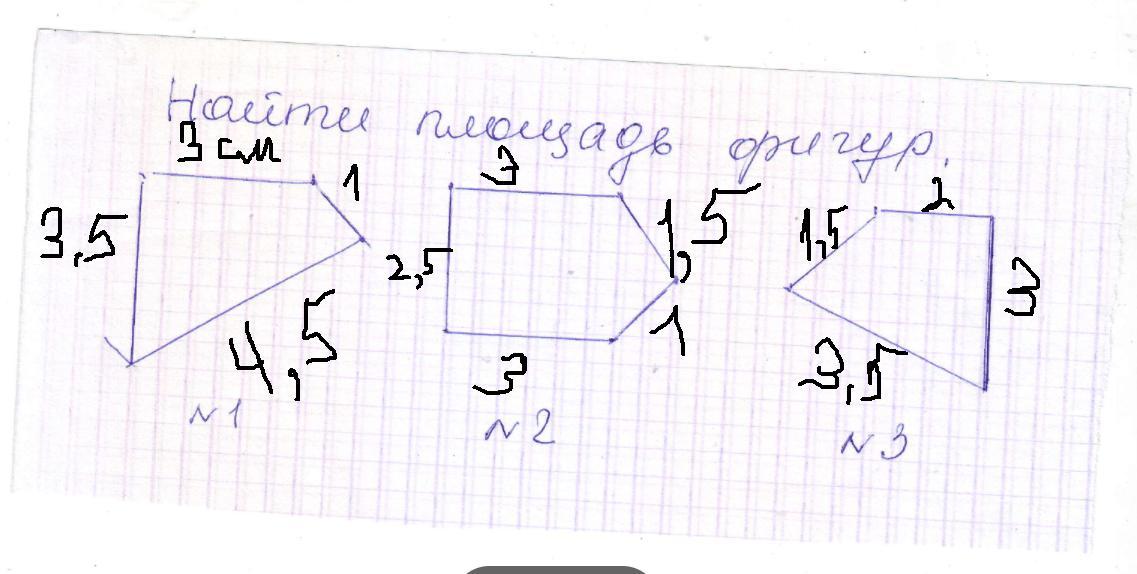 Найти площадь фигур.
3 см 1 3,5 4,5
3 1,5 2,5 1 3
2 1,5 3 3,5
N1 N2 N3